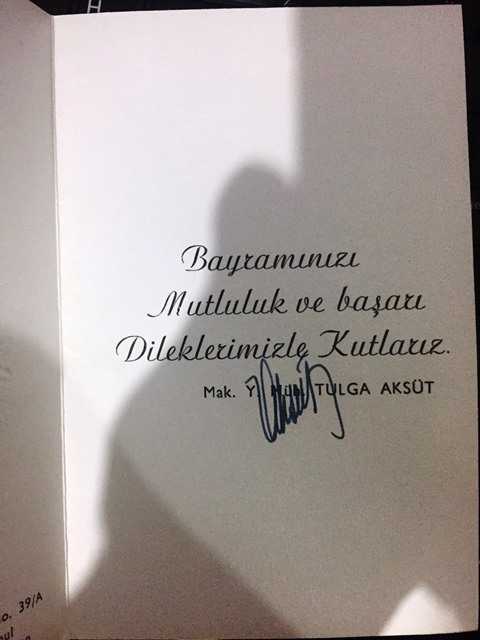 Bayramınızı
Mutluluk ve başarı
Dileklerimizle Kutlarız.
Mak. Y. Müh. TULGA AKSÜT
39/A